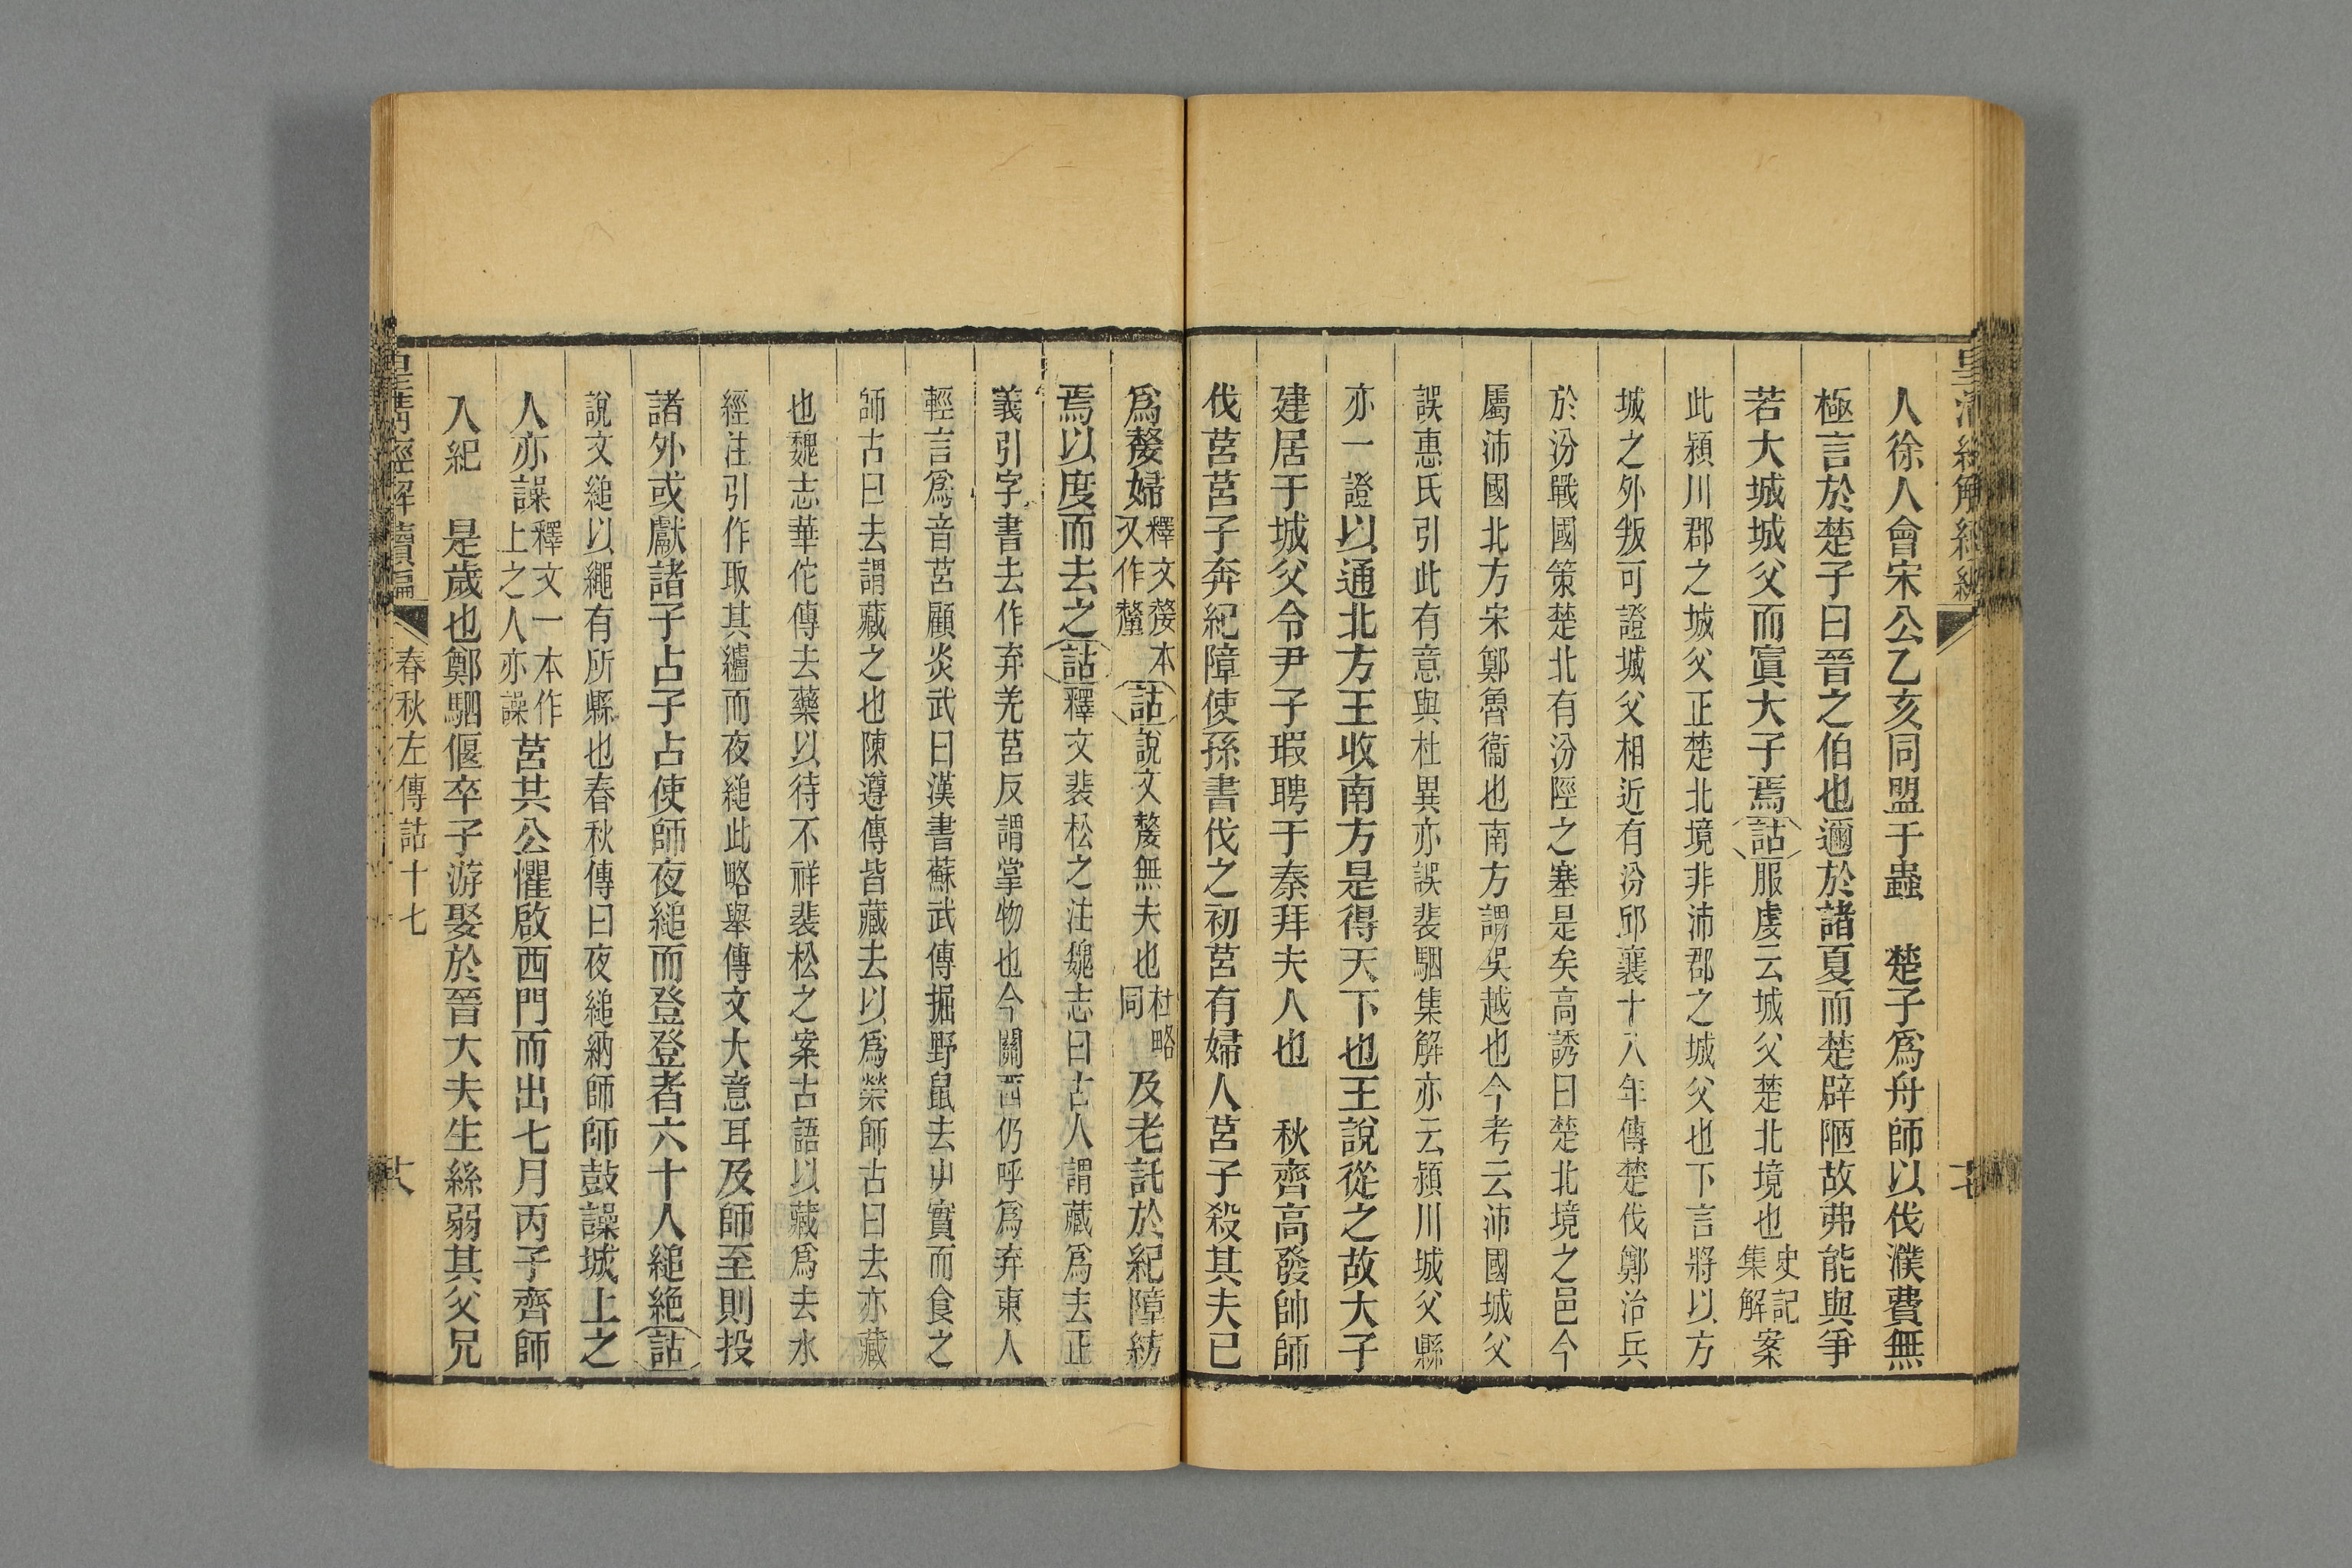 皇清經解續編
人徐人會宋公乙亥同盟于蟲　楚子爲舟師以伐濮費無
極言於楚子曰晉之伯也邇於諸夏而楚辟陋故弗能與爭
若大城城父而寘大子焉詁服虔云城父楚北境也史記集解案
此潁川郡之城父正楚北境非沛郡之城父也下言將以方
城之外叛可證城父相近有汾邱襄十八年傳楚伐鄭治兵
於汾戰國策楚北有汾陘之塞是矣高誘曰楚北境之邑今
屬沛國北方宋鄭魯衞也南方謂吳越也今考云沛國城父
誤惠氏引此有意與杜異亦誤裴駰集解亦云潁川城父縣
亦一證以通北方王收南方是得天下也王說從之故大子
建居于城父令尹子瑕聘于秦拜夫人也　秋齊高發帥師
伐莒莒子奔紀障使孫書伐之初莒有婦人莒子殺其夫已
爲嫠婦釋文嫠本又作釐詁說文嫠無夫也杜略同及老託於紀障紡
焉以度而去之詁釋文裴松之注魏志曰古人謂藏爲去正
義引字書去作弆羌莒反謂掌物也今關西仍呼爲弆東人
輕言爲音莒顧炎武曰漢書蘇武傳掘野鼠去屮實而食之
師古曰去謂藏之也陳遵傳皆藏去以爲榮師古曰去亦藏
也魏志華佗傳去藥以待不祥裴松之案古語以藏爲去水
經注引作取其纑而夜縋此略舉傳文大意耳及師至則投
諸外或獻諸子占子占使師夜縋而登登者六十人縋絶詁
說文縋以繩有所縣也春秋傳曰夜縋納師師鼓譟城上之
人亦譟釋文一本作上之人亦譟莒共公懼啟西門而出七月丙子齊師
入紀　是歲也鄭駟偃卒子游娶於晉大夫生絲弱其父兄
皇清經解續編　春秋左傳詁十七